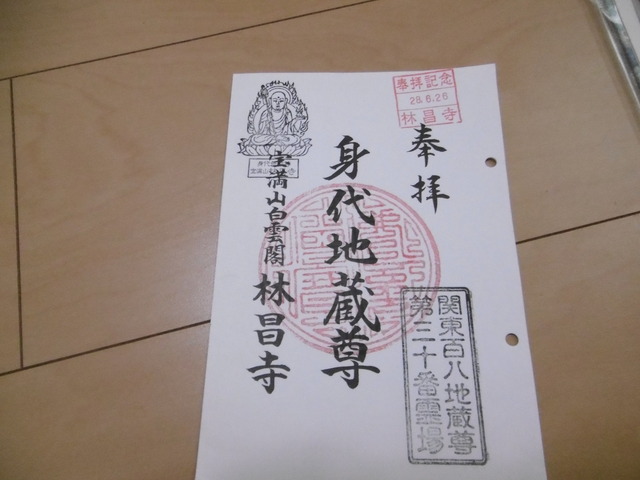 奉拝記念
28.6.26
林昌寺
奉拝
関東百八地蔵尊
第三十番霊場
身代地蔵尊
宝満山白雲閣 林昌寺